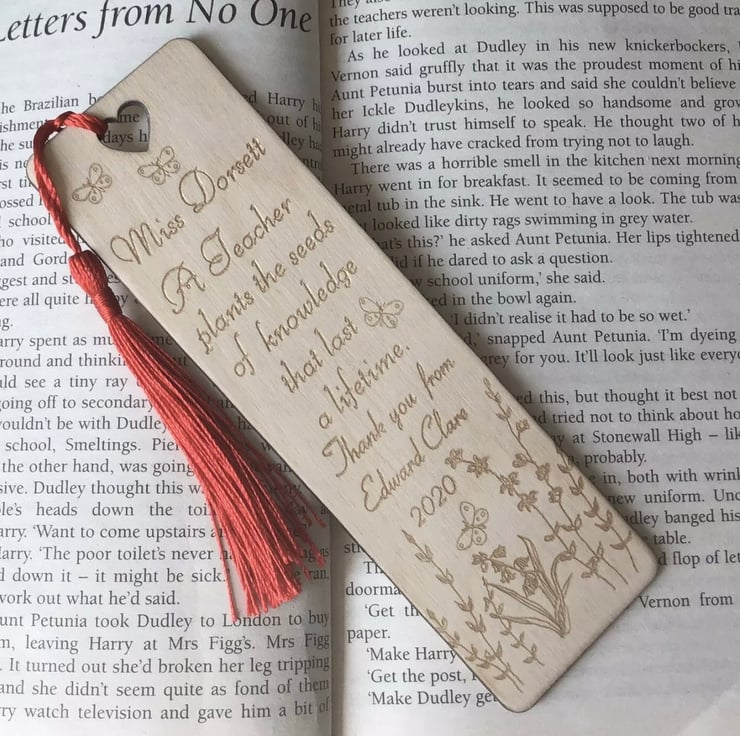 Letters from No One
he Brazilian b
ed Harry hi
out of hi
he su
me
days h
is ne
st ti
ossed
school
ho visited
and Gord
gest and st
ere all quite h
by
g.
arry spent as mu
me
round and thinki
ut
ld see a tiny ray
oing off to secondary
ouldn't be with Dudley
school, Smeltings. Pier
the other hand, was going
sive. Dudley thought this w
le's heads down the toi
arry. 'Want to come upstairs a
arry. 'The poor toilet's never
d down it – it might be sick.'
ran,
work out what he'd said.
unt Petunia took Dudley to London to buy
m, leaving Harry at Mrs Figg's. Mrs Figg
. It turned out she'd broken her leg tripping
and she didn't seem quite as fond of them
ry watch television and gave him a bit of
the teachers weren't looking. This was supposed to be good tra
for later life.
As he looked at Dudley in his new knickerbockers,
Vernon said gruffly that it was the proudest moment of hi
Aunt Petunia burst into tears and said she couldn't believe
her Ickle Dudleykins, he looked so handsome and grow
Harry didn't trust himself to speak. He thought two of h
might already have cracked from trying not to laugh.
There was a horrible smell in the kitchen next morning
Harry went in for breakfast. It seemed to be coming from
etal tub in the sink. He went to have a look. The tub was
looked like dirty rags swimming in grey water.
at's this?' he asked Aunt Petunia. Her lips tightened
id if he dared to ask a question.
w school uniform,' she said.
ed in the bowl again.
'I didn't realise it had to be so wet.'
d,' snapped Aunt Petunia. 'I'm dyeing
rey for you. It'll look just like every
ed this, but thought it best not
d tried not to think about ho
y at Stonewall High – lik
, probably.
e in, both with wrink
new uniform. Unc
dley banged his
table.
d flop of let
doorma
Vernon from
'Get th
paper.
'Make Harry
'Get the post,
'Make Dudley get
Miss Dorsett
A Teacher
plants the seeds
of knowledge
that last
a lifetime.
Thank you from
Edward Clare
2020